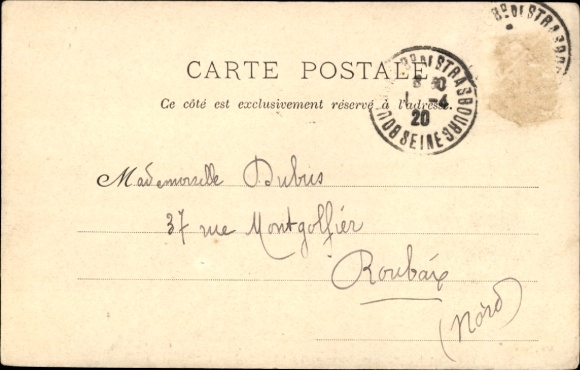 Bᴰ DE STRASBOURG
CARTE POSTALE
Bᴰ DE STRASBOURG
1 -4
20
SEINE
Ce côté est exclusivement réservé à l'adresse.
Mademoiselle Dubus
37 rue Montgolfier
Roubaix
(Nord)